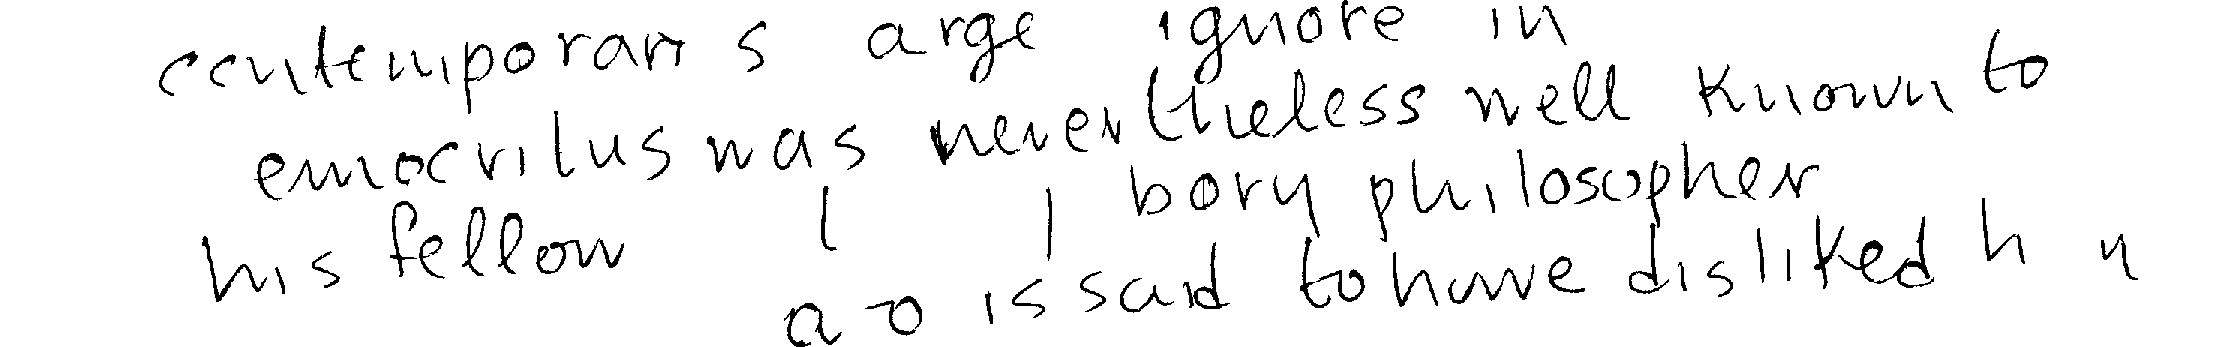 arge ignore in
emocritus was nevertheless well known to
his fellow born philosopher
is said to have disliked